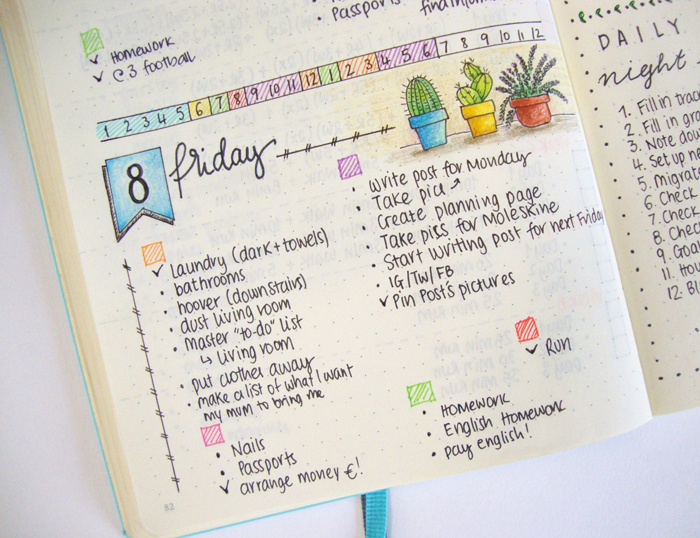 Passports
find inform
Homework
✓ C3 football
1 2 3 4 5 6 7 8 9 10 11 12 1 2 3 4 5 6 7 8 9 10 11 12
8 friday
✓ Laundry (dark + towels)
• bathrooms
• hoover (downstairs)
• dust living room
• Master "to-do" list
↳ Living room
• put clothes away
• make a list of what I want
my mum to bring me
• Nails
• Passports
✓ arrange money €!
• Write post for Monday
• Take pics ↗
• Create planning page
• Take pics for Moleskine
• Start writing post for next Friday
• IG/TW/FB
✓ Pin Post's pictures
✓ Run
• Homework
• English Homework
• pay english!
82
DAILY
night
1. Fill in trac
2. Fill in gra
3. Note dow
4. Set up ne
5. Migrate
6. Check
7. Check
8. Check
9. Goa
10. Ho
12. Bl